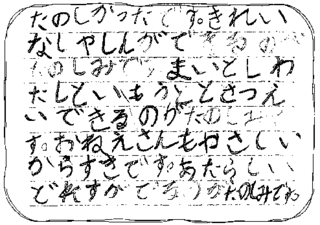 たのしかったです。きれい
なしゃしんができるのが
たのしみです。まいとしわ
たしといもうとさつえ
いできるのがたのしみ
す。おねえさんもやさしい
からすきです。あたらしい
どれすが たのしみです。